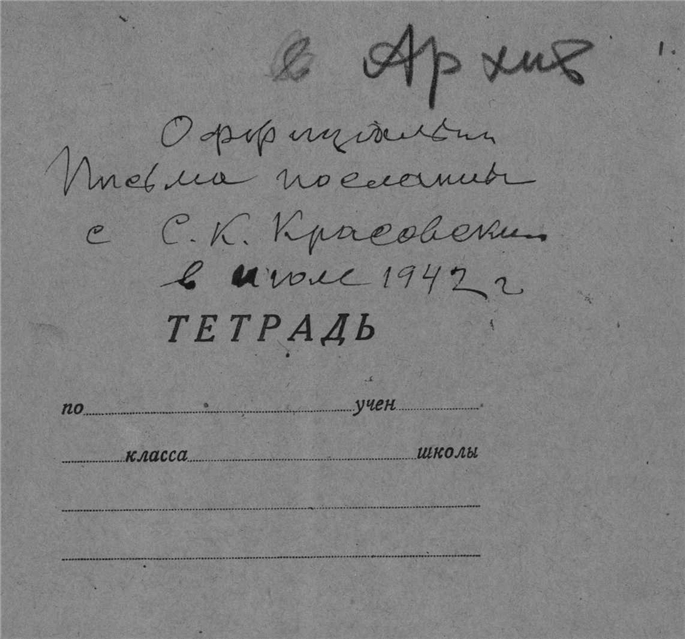 в Архив
Оффициальн
Письма посланны
с С.К. Красовским
в июле 1942 г
ТЕТРАДЬ
по учен
класса школы